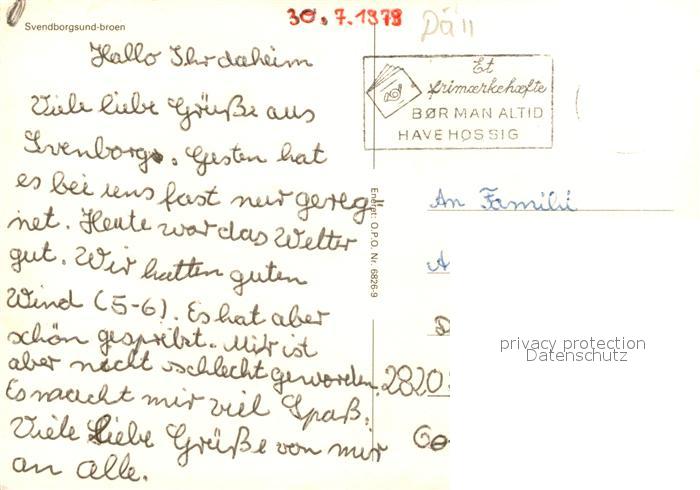 Svendborgsund-broen
30.7.1979
Dä 11
Hallo Ihr daheim
Viele liebe Grüße aus
Svenborg. Gestern hat
es bei uns fast nur gereg-
net. Heute war das Wetter
gut. Wir hatten guten
Wind (5-6). Es hat aber
schön gespritzt. Mir ist
aber nicht schlecht geworden.
Es macht mir viel Spaß.
Viele Liebe Grüße von mir
an alle.
Eneret: O.P.O. Nr. 6826-9
Et
frimærkehæfte
BØR MAN ALTID
HAVE HOS SIG
An Famili
A
D
2820
Ge
privacy protection
Datenschutz